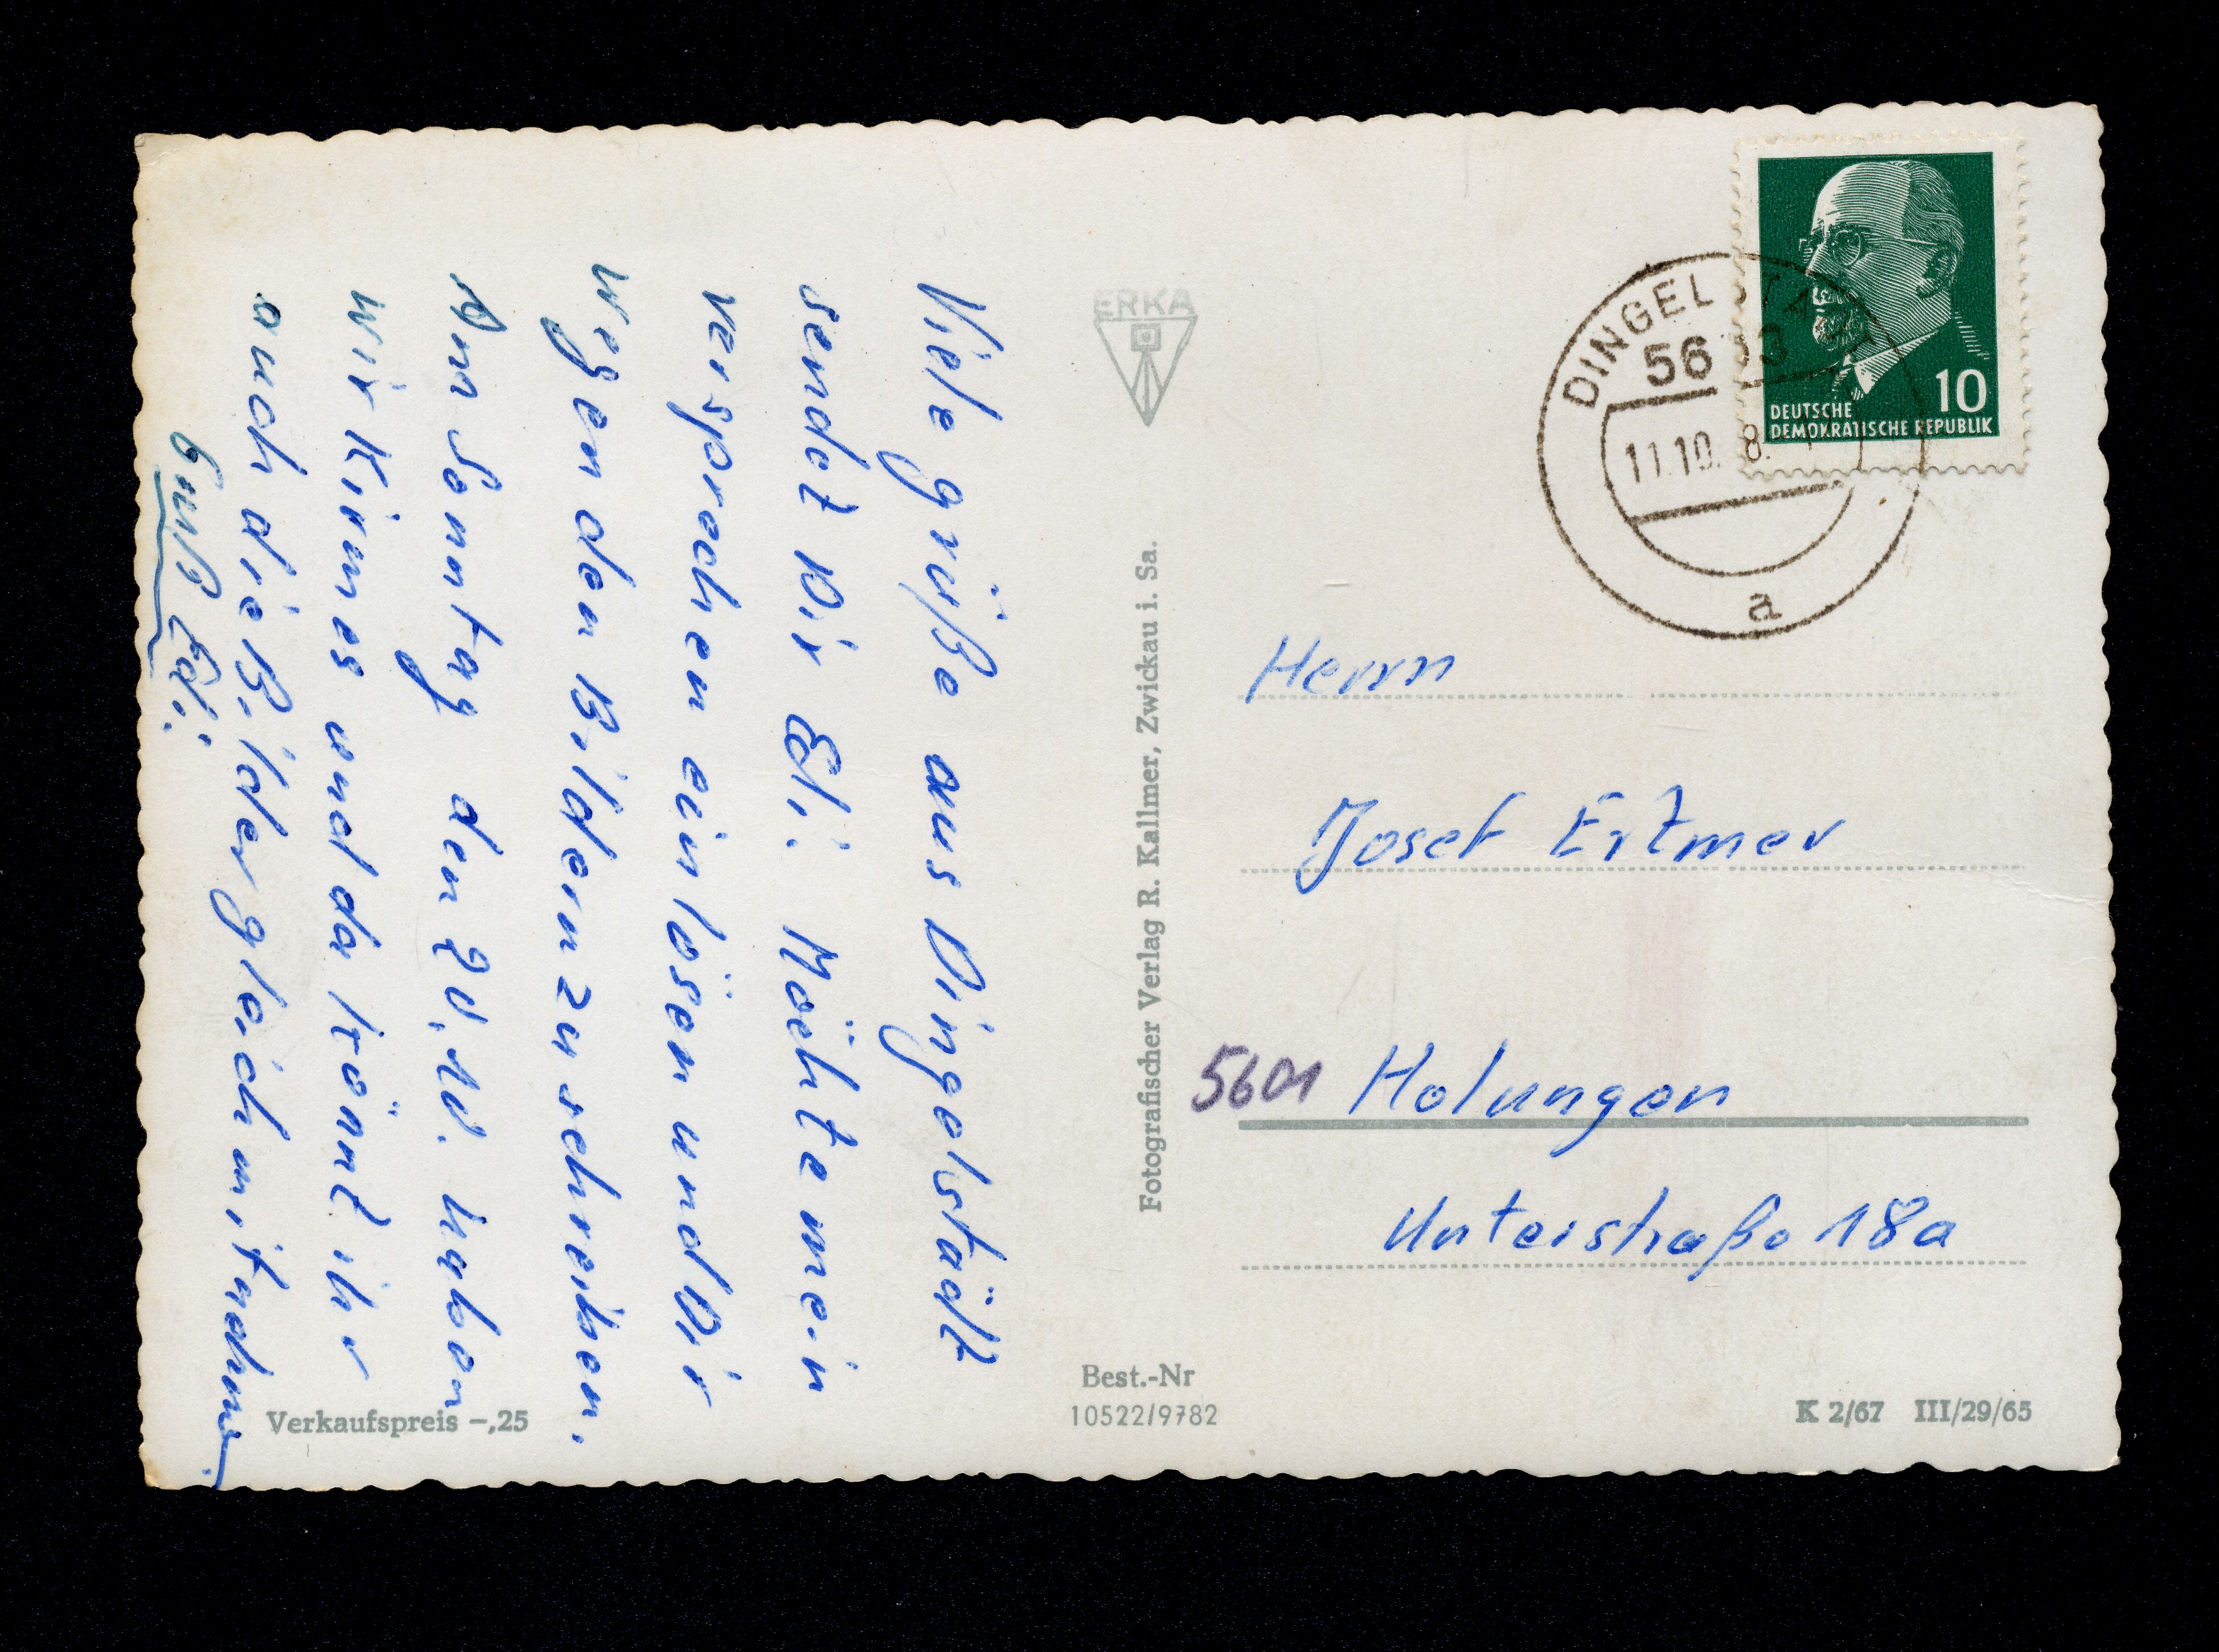 Viele grüße aus Dingelstädt
sendet Dir Edi. Möchte mein
versprechen einlösen und Dir
wegen den Bildern zu schreiben.
Am Sonntag den 20.10. haben
wir Kirmes und da könnt ihr
auch die Bilder gleich mitnehmen.
Gruß Edi.
ERKA
Fotografischer Verlag R. Kallmer, Zwickau i. Sa.
DEUTSCHE
DEMOKRATISCHE REPUBLIK
10
DINGELSTÄDT
11.10.
a
Herrn
Josef Ertmer
5601 Holungen
Unterstraße 18a
Verkaufspreis –,25
Best.-Nr
10522/9782
K 2/67 III/29/65